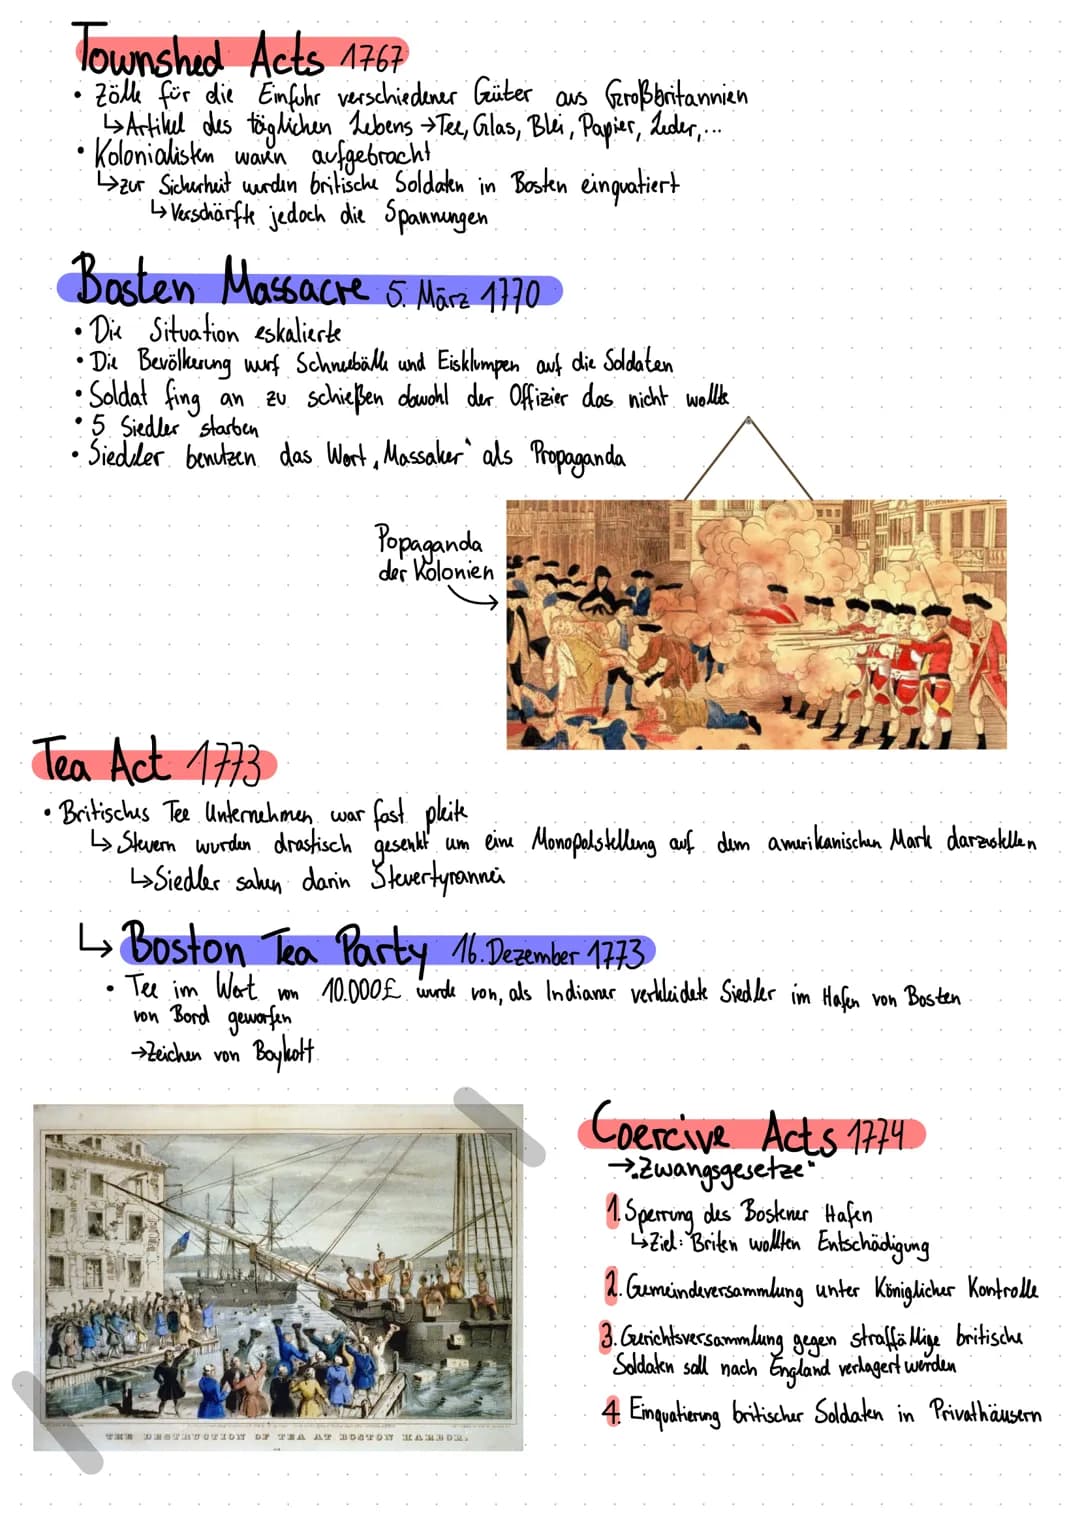 Townshed Acts 1767
• Zölle für die Einfuhr verschiedener Güter aus Großbritannien
↳ Artikel des täglichen Lebens → Tee, Glas, Blei, Papier, Leder,...
• Kolonialisten waren aufgebracht
↳ zur Sicherheit wurden britische Soldaten in Bosten einquatiert
↳ Verschärfte jedoch die Spannungen
Bosten Massacre 5. März 1770
• Die Situation eskalierte
• Die Bevölkerung wurf Schneebälle und Eisklumpen auf die Soldaten
• Soldat fing an zu schießen obwohl der Offizier das nicht wollte
• 5 Siedler starben
• Siedler benutzen das Wort "Massaker" als Propaganda
Popaganda
der Kolonien
Tea Act 1773
• Britisches Tee Unternehmen war fast pleite
↳ Steuern wurden drastisch gesenkt um eine Monopolstellung auf dem amerikanischen Mark darzustellen
↳ Siedler sahen darin Steuertyrannei
↳ Boston Tea Party 16. Dezember 1773
• Tee im Wert von 10.000£ wurde von, als Indianer verkleidete Siedler im Hafen von Bosten
von Bord geworfen
→ Zeichen von Boykott
Coercive Acts 1774
→ "Zwangsgesetze"
1. Sperrung des Bostener Hafen
↳ Ziel: Briten wollten Entschädigung
2. Gemeindeversammlung unter Königlicher Kontrolle
3. Gerichtsversammlung gegen straffällige britische
Soldaten soll nach England verlagert werden
4. Einquatierung britischer Soldaten in Privathäusern
THE DESTRUCTION OF TEA AT BOSTON HARBOR.